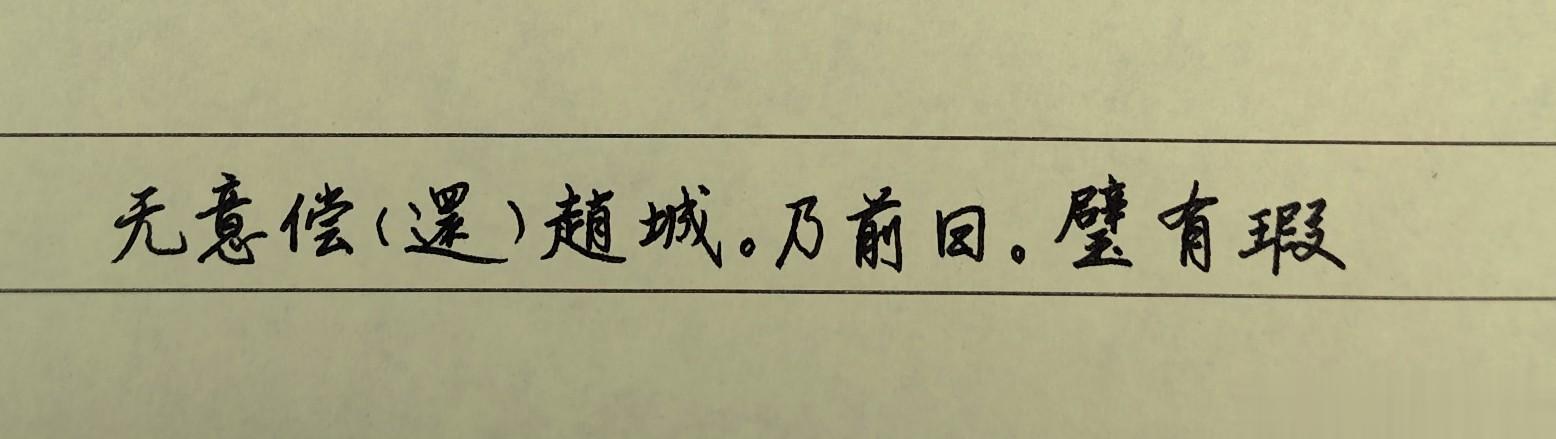 无意偿(還)趙城。乃前曰。璧有瑕